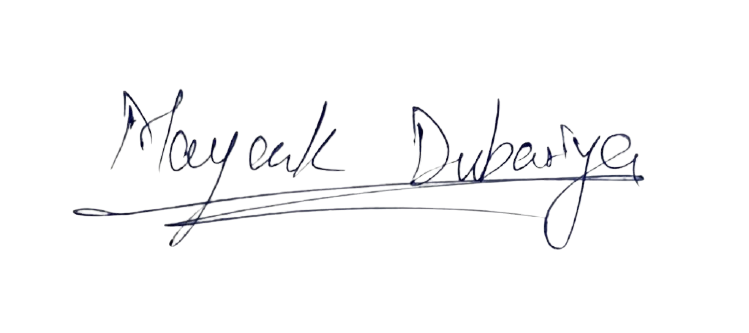 Mayank Dubariya